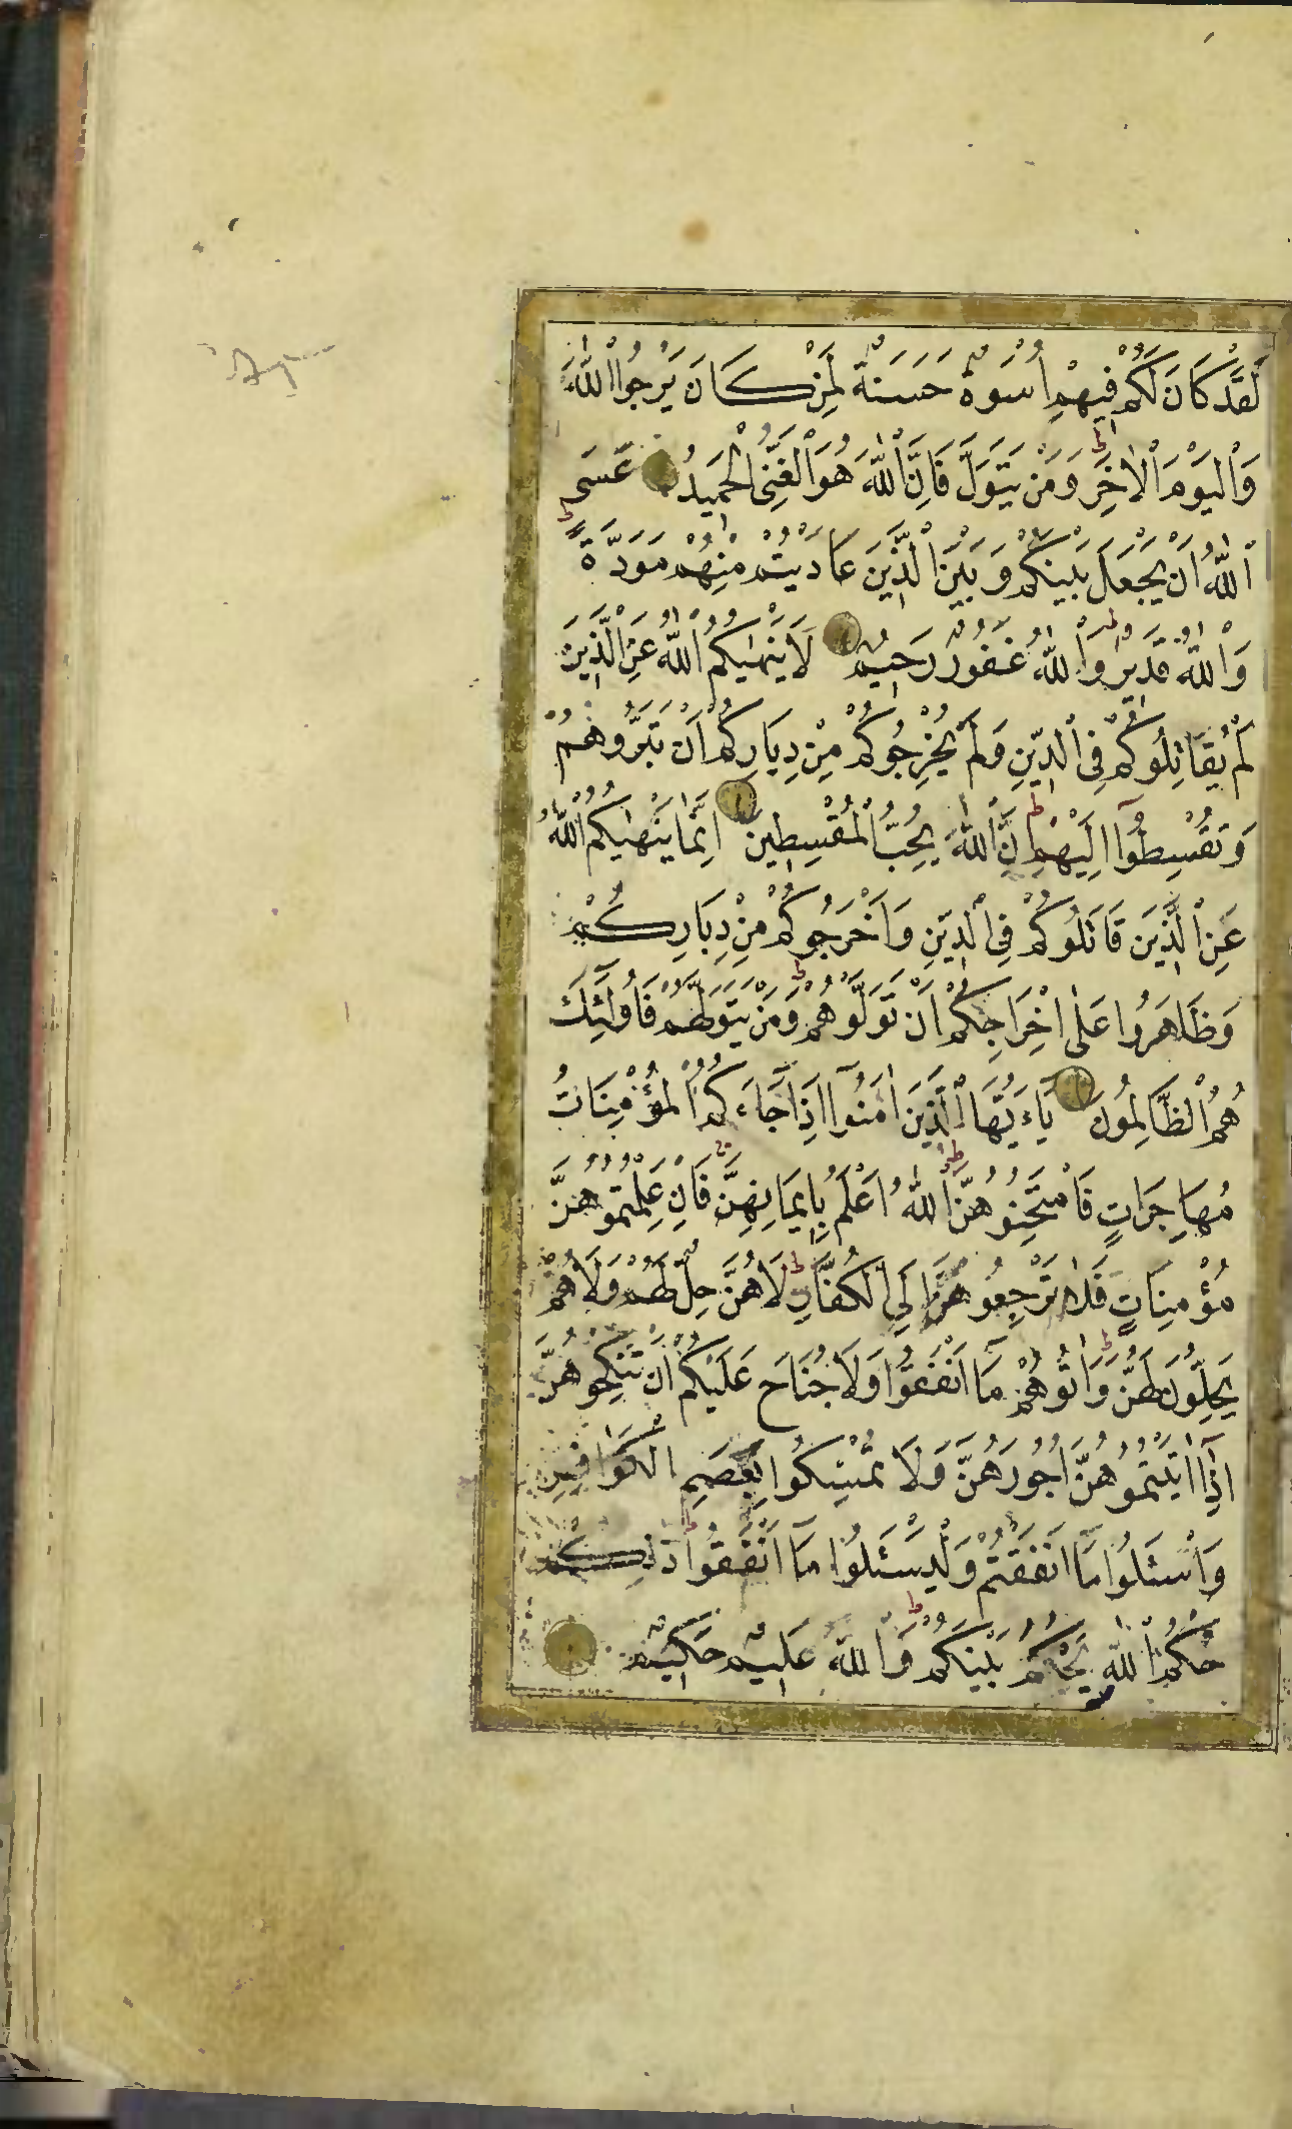 لَقَدْ كَانَ لَكُمْ فِيهِمْ أُسْوَةٌ حَسَنَةٌ لِمَنْ كَانَ يَرْجُوا اللّٰهَ
وَالْيَوْمَ الْاٰخِرَ وَمَنْ يَتَوَلَّ فَاِنَّ اللّٰهَ هُوَ الْغَنِيُّ الْحَمِيدُ عَسَى
اللّٰهُ اَنْ يَجْعَلَ بَيْنَكُمْ وَبَيْنَ الَّذِينَ عَادَيْتُمْ مِنْهُمْ مَوَدَّةً
وَاللّٰهُ قَدِيرٌ وَاللّٰهُ غَفُورٌ رَحِيمٌ لَا يَنْهٰيكُمُ اللّٰهُ عَنِ الَّذِينَ
لَمْ يُقَاتِلُوكُمْ فِي الدِّينِ وَلَمْ يُخْرِجُوكُمْ مِنْ دِيَارِكُمْ اَنْ تَبَرُّوهُمْ
وَتُقْسِطُوٓا اِلَيْهِمْ اِنَّ اللّٰهَ يُحِبُّ الْمُقْسِطِينَ اِنَّمَا يَنْهٰيكُمُ اللّٰهُ
عَنِ الَّذِينَ قَاتَلُوكُمْ فِي الدِّينِ وَاَخْرَجُوكُمْ مِنْ دِيَارِكُمْ
وَظَاهَرُوا عَلٰى اِخْرَاجِكُمْ اَنْ تَوَلَّوْهُمْ وَمَنْ يَتَوَلَّهُمْ فَاُولٰٓئِكَ
هُمُ الظَّالِمُونَ يَاءَيُّهَا الَّذِينَ اٰمَنُوٓا اِذَا جَاءَكُمُ الْمُؤْمِنَاتُ
مُهَاجِرَاتٍ فَامْتَحِنُوهُنَّ اَللّٰهُ اَعْلَمُ بِاِيمَانِهِنَّ فَاِنْ عَلِمْتُمُوهُنَّ
مُؤْمِنَاتٍ فَلَا تَرْجِعُوهُنَّ اِلَى الْكُفَّارِ لَا هُنَّ حِلٌّ لَهُمْ وَلَا هُمْ
يَحِلُّونَ لَهُنَّ وَاٰتُوهُمْ مَٓا اَنْفَقُوا وَلَا جُنَاحَ عَلَيْكُمْ اَنْ تَنْكِحُوهُنَّ
اِذَٓا اٰتَيْتُمُوهُنَّ اُجُورَهُنَّ وَلَا تُمْسِكُوا بِعِصَمِ الْكَوَافِرِ
وَاسْئَلُوا مَٓا اَنْفَقْتُمْ وَلْيَسْئَلُوا مَٓا اَنْفَقُوا ذٰلِكُمْ
حُكْمُ اللّٰهِ يَحْكُمُ بَيْنَكُمْ وَاللّٰهُ عَلِيمٌ حَكِيمٌ